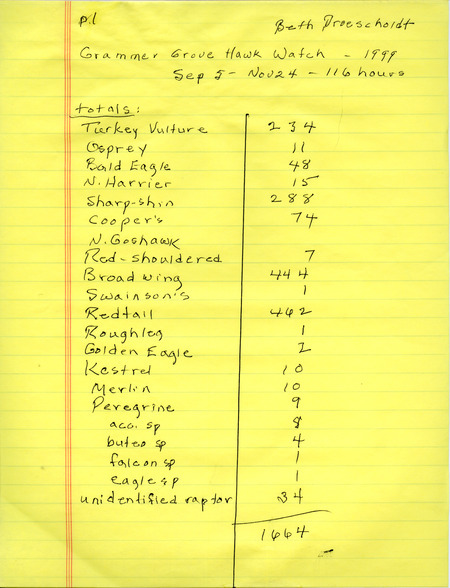 p.1
Beth Proescholdt
Grammer Grove Hawk Watch - 1999
Sep 5 - Nov 24 - 116 hours
totals:
Turkey Vulture 234
Osprey 11
Bald Eagle 48
N. Harrier 15
Sharp-shin 288
Cooper's 74
N. Goshawk
Red-shouldered 7
Broadwing 444
Swainson's 1
Redtail 462
Roughleg 1
Golden Eagle 2
Kestrel 10
Merlin 10
Peregrine 9
acci. sp 8
buteo sp 4
falcon sp 1
eagle sp 1
unidentified raptor 34
1664